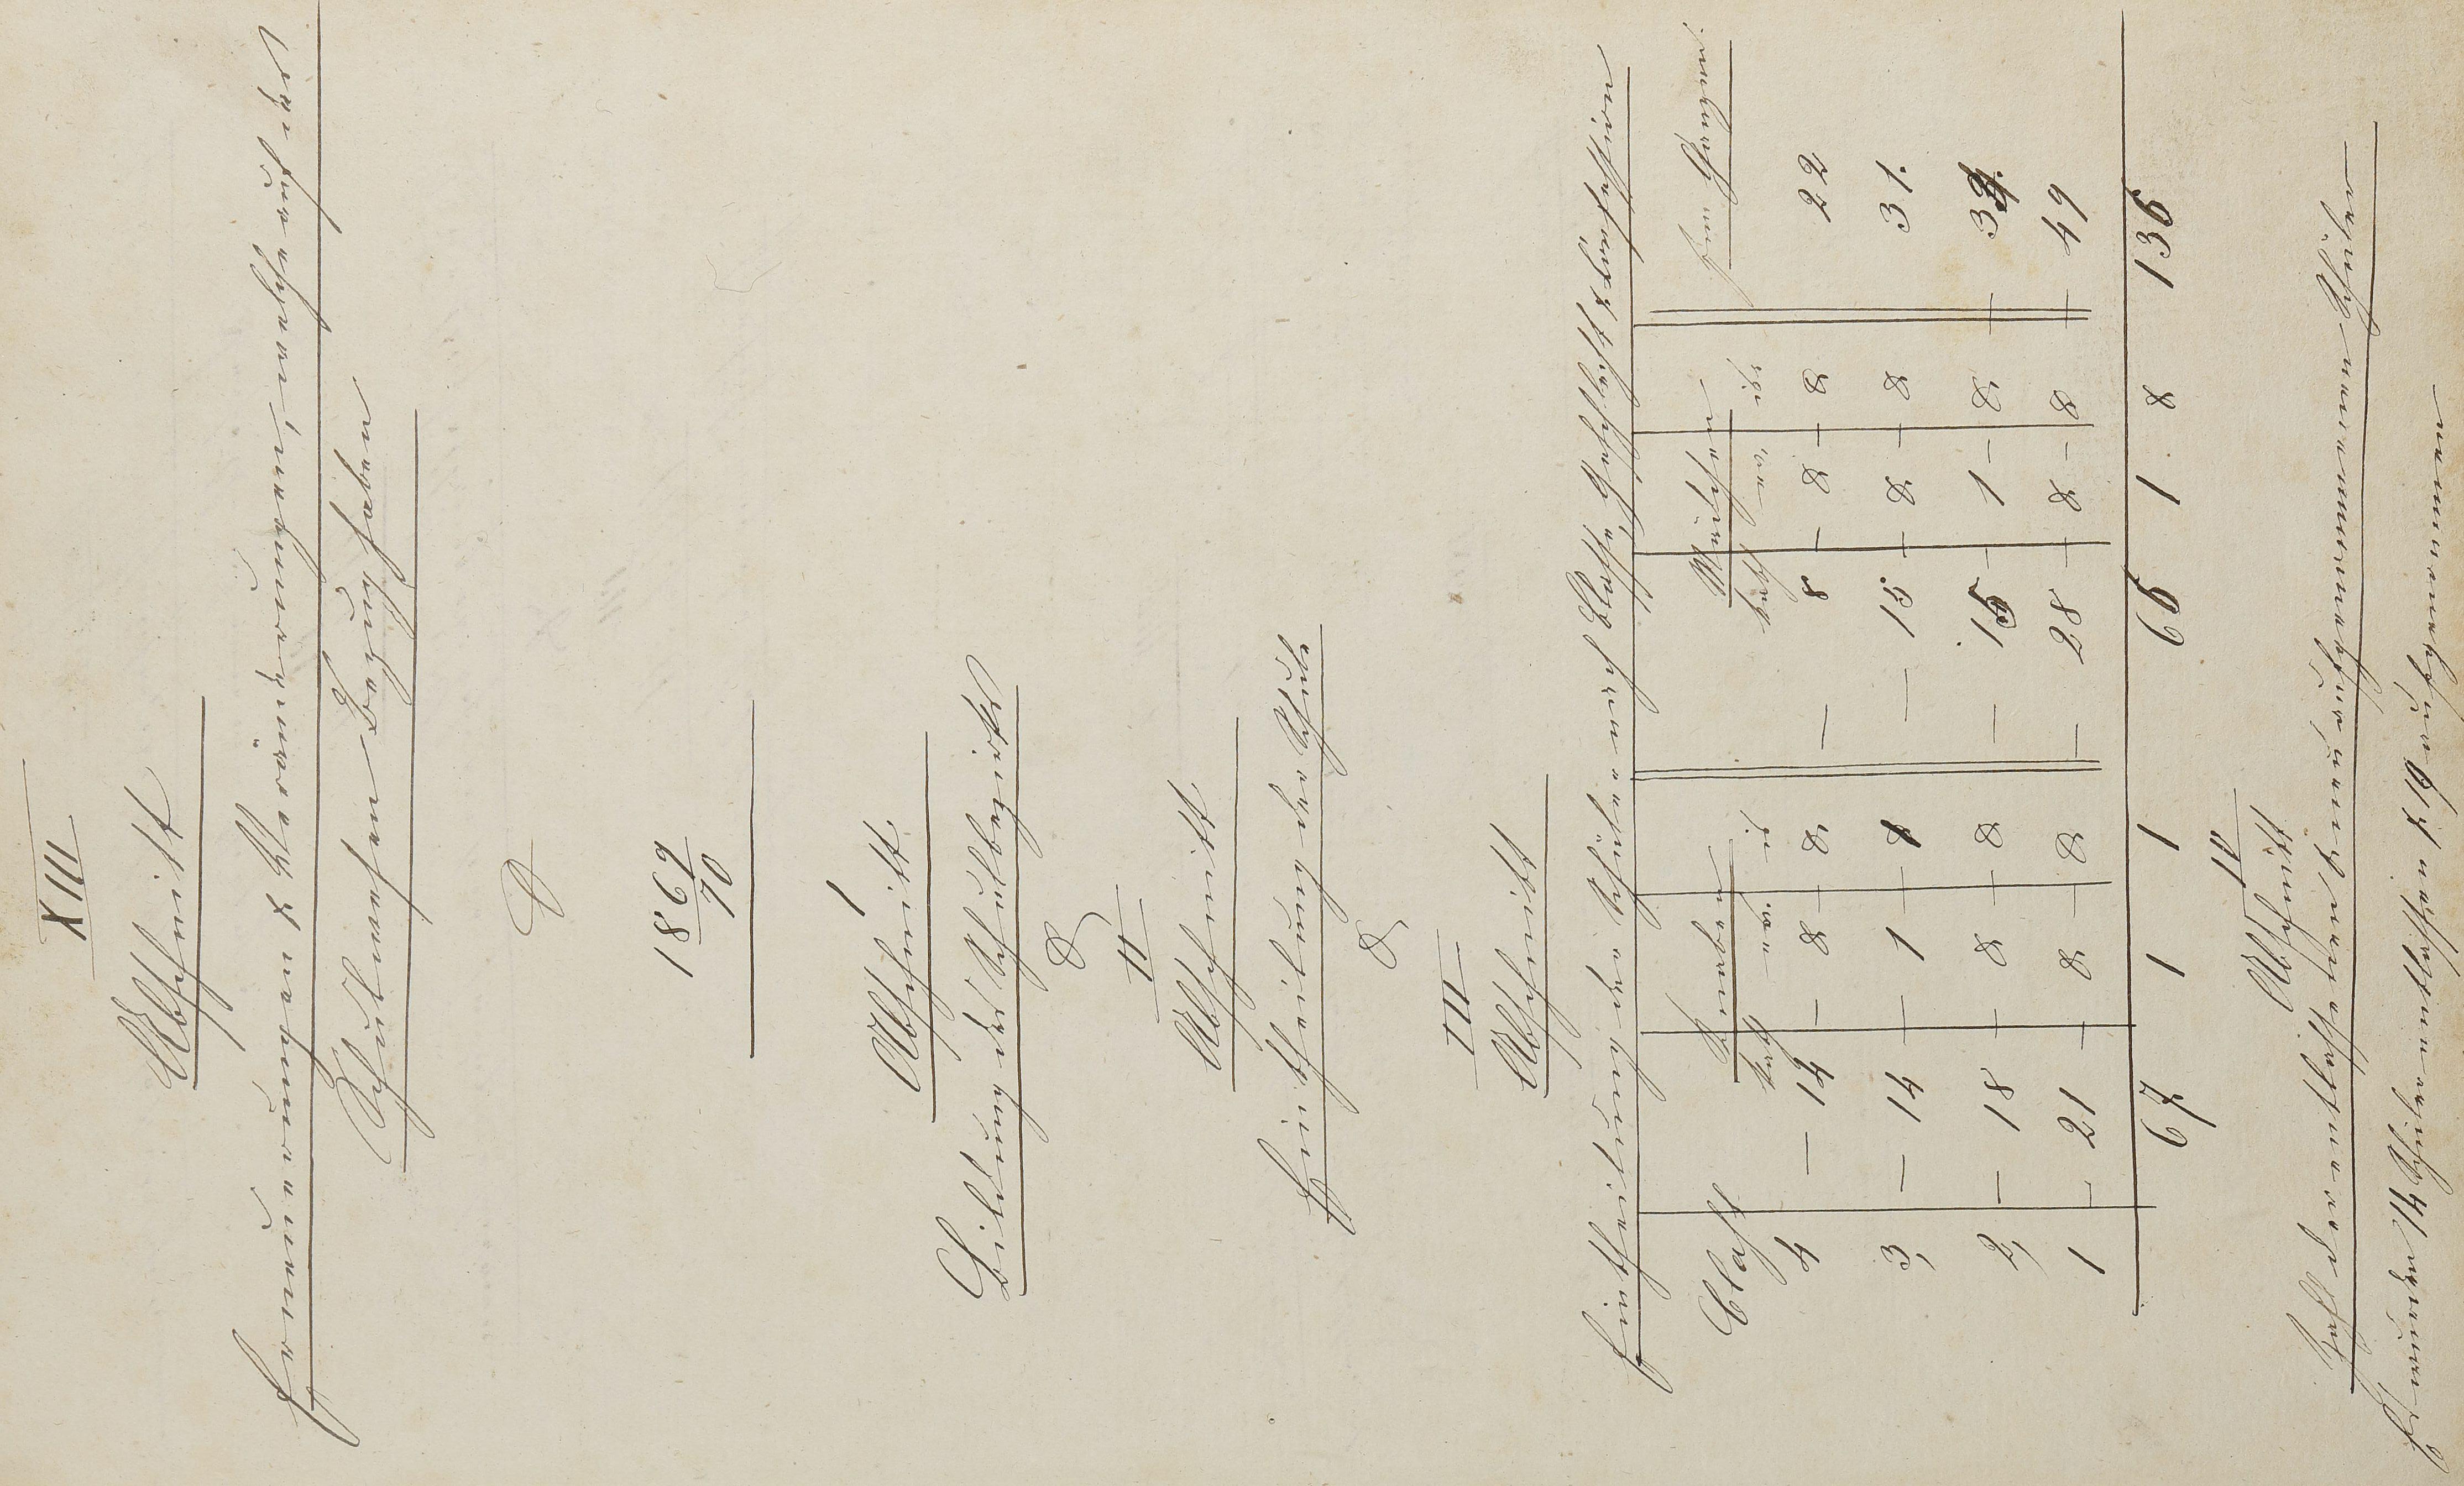 XIII
Abschnitt
Erneuerungen & Veränderungen, welche auf das
Schulwesen Bezug haben
1869/70
I
Abschnitt
Bildung des Schulbezirks
&
II
Abschnitt
Eintheilung der Schule
&
III
Abschnitt
Eintheilung der Schüler nach Classe, Geschlecht & Confession
Classe Knaben Mädchen Im Ganzen
kath. ev. is. kath. ev. is.
4 — 14 — & — & — 8 — & — & 22
3, — 14 — 1 — & — 15 — & — & 31.
2, — 18 — & — & — 15 — 1 — & — 34.
1 — 21 — & — & — 28 — & — & — 49
67 1 1 66 1 & 136
IV
Abschnitt
Zahl der entlassenen & neu aufgenommenen Schüler
Es wurden 14 Schüler entlassen & 19 aufgenommen